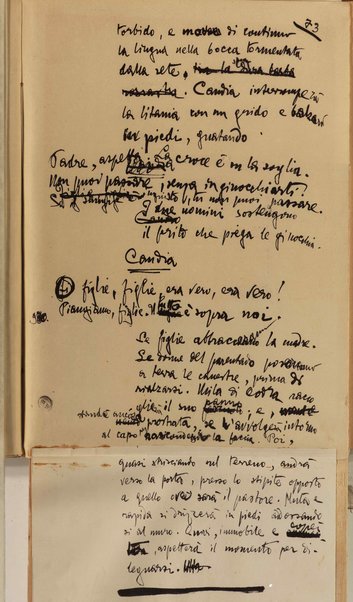 73
torbido, e move di continuo
la lingua nella bocca tormentata
dalla sete,
Candia interromperà
la litania con un grido e balzerà
in piedi, guatando.
Padre, aspetta. La croce è su la soglia.
Non puoi passare, senza inginocchiarti.
ingiusto, tu non puoi passare.
I due uomini sostengono
il ferito che piega le ginocchia.
Candia
figlie, figlie, era vero, era vero!
Piangiamo, figlie. Il lutto è sopra noi.
Le figlie abbracceranno la madre.
Le donne del parentado poseranno
a terra le canestre, prima di
rialzarsi. Mila di Codra racco
glierà il suo panno, e,
stando ancora prostrata, se l'avvolgerà intorno
al capo nascondendo la faccia. Poi,
quasi strisciando sul terreno, andrà
verso la porta, presso lo stipite opposto
a quello ove sarà il pastore. Muta e
rapida si drizzerà in piedi addossando
si al muro. Quivi, immobile e coper
ta, aspetterà il momento per di
leguarsi.